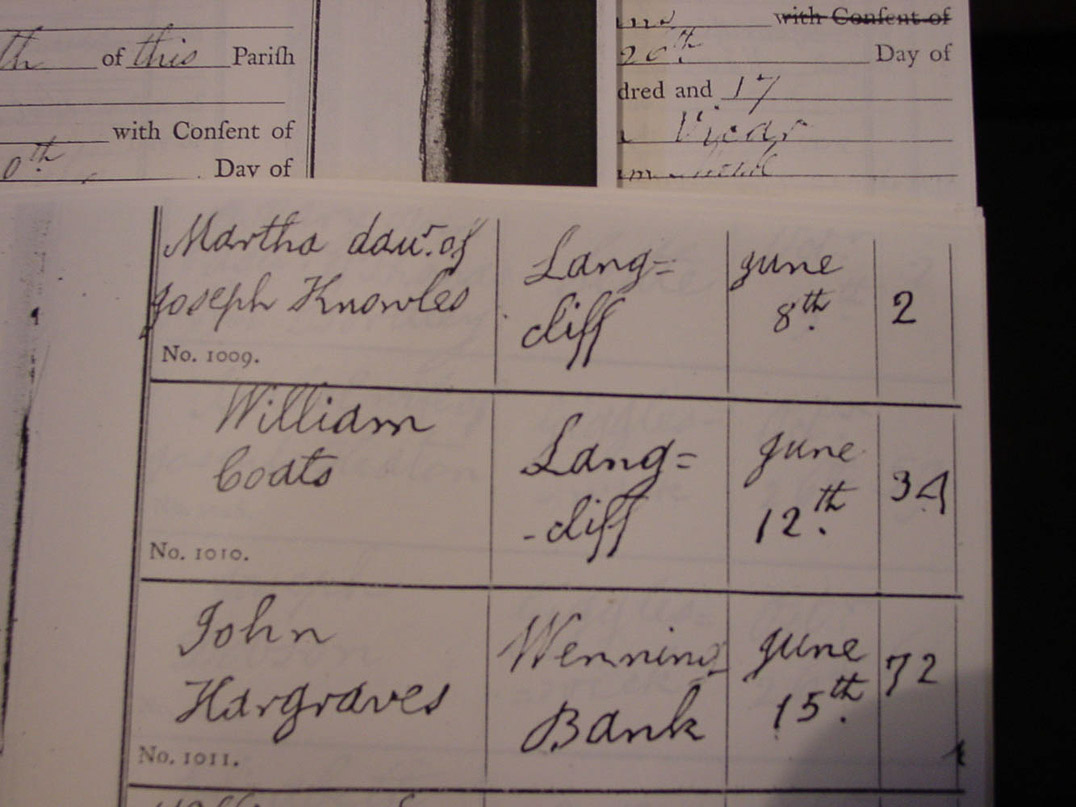 th of this Pariſh
with Conſent of
0th Day of
with Conſent of
20th Day of
dred and 17
Vicar
Martha daur. of
Joseph Knowles
No. 1009.
Lang=
cliff
June
8th.
2
William
Coats
No. 1010.
Lang=
-cliff
June
12th.
34
John
Hargraves
No. 1011.
Wenning
Bank
June
15th.
72